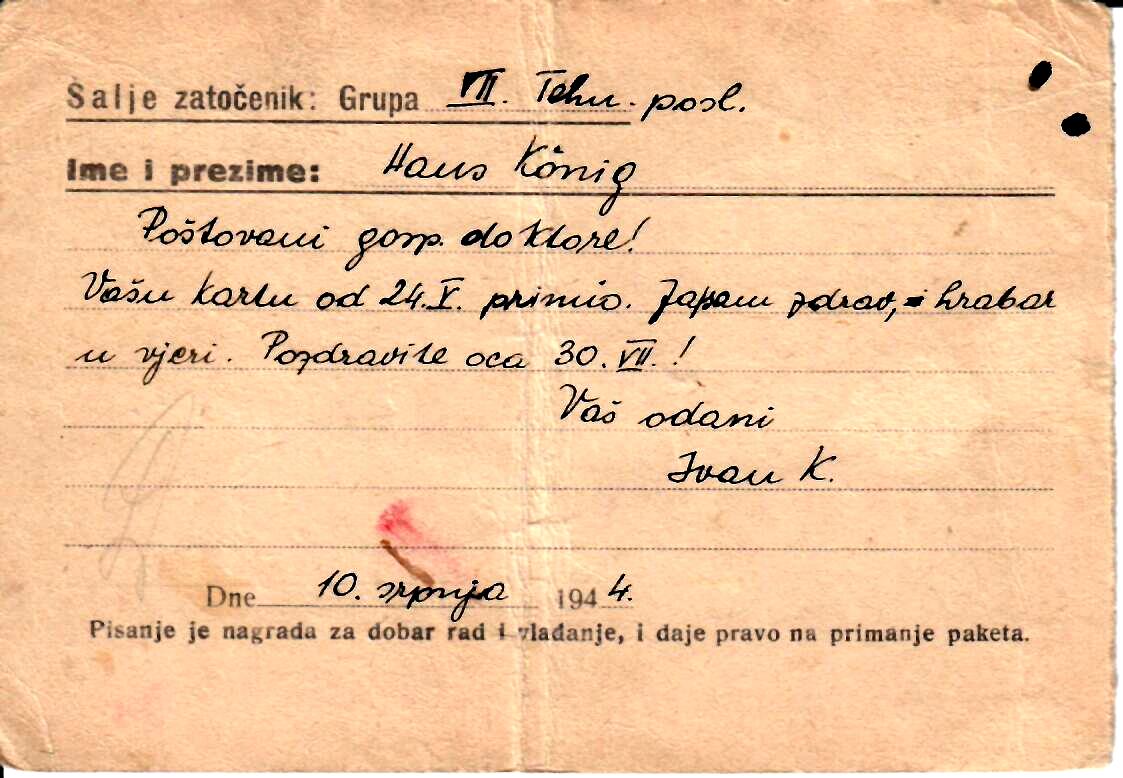 Šalje zatočenik: Grupa VII. Tehn. posl.
Ime i prezime: Hans König
Poštovani gosp. doktore!
Vašu kartu od 24.V. primio. Ja sam zdrav, i hrabar
u vjeri. Pozdravite oca 30. VII.!
Vaš odani
Ivan K.
Dne 10. srpnja 1944.
Pisanje je nagrada za dobar rad i vlađanje, i daje pravo na primanje paketa.